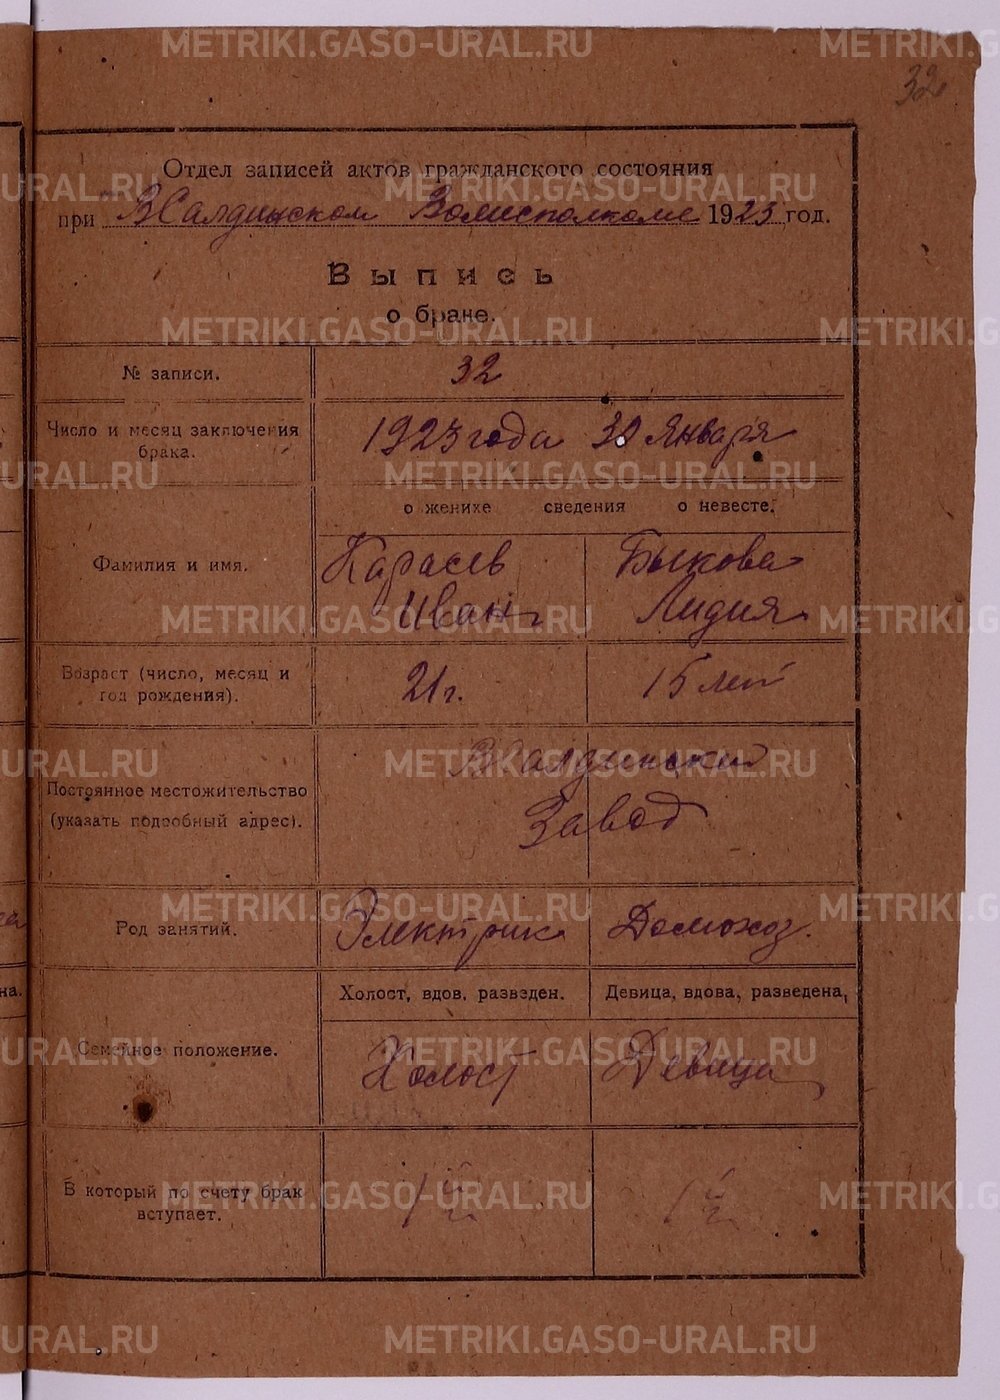 32
Отдел записей актов гражданского состояния
при ВСалдинском Волисполкоме 1923 год.
Выпись
о браке.
№ записи. 32
Число и месяц заключения брака. 1923 года 30 Января
о женихе сведения о невесте.
Фамилия и имя. Карасев Быкова
Иван Лидия
Возраст (число, месяц и
год рождения). 21 г. 15 лет
Постоянное местожительство
(указать подробный адрес). ВСалдинский
Завод
Род занятий. Электрик Домохоз.
Холост, вдов, разведен. Девица, вдова, разведена,
Семейное положение. Холост Девица
В который по счету брак
вступает. 1й 1й
METRIKI.GASO-URAL.RU